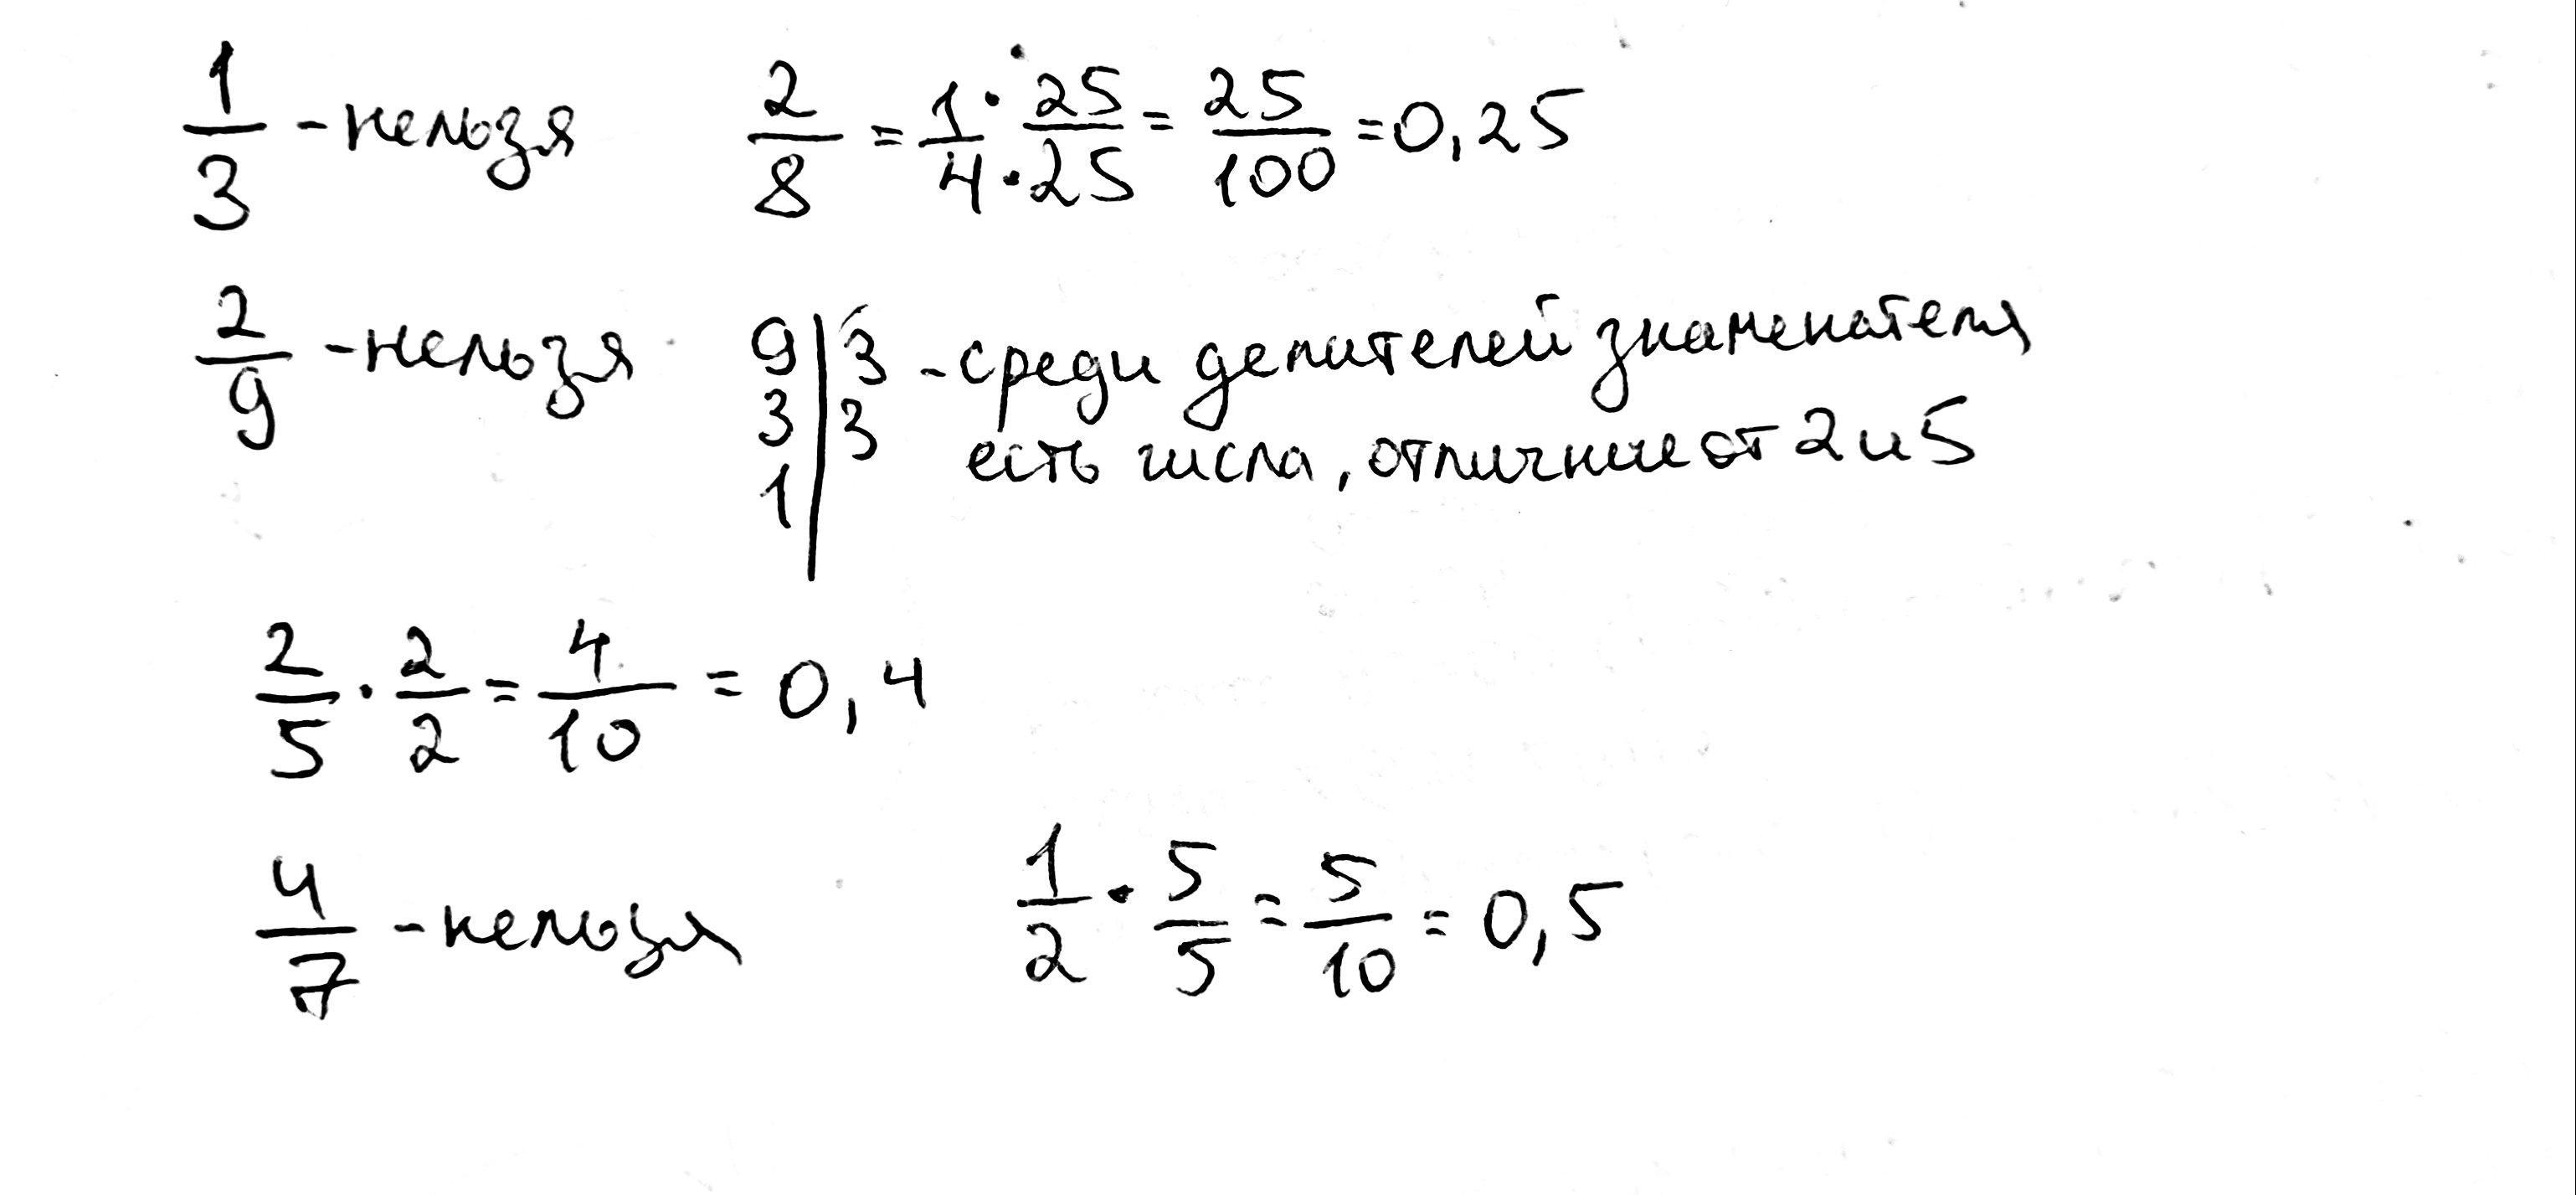 1/3 - нельзя 2/8 = 1·25/4·25 = 25/100 = 0,25
2/9 - нельзя 9|3 - среди делителей знаменателя
3|3 есть числа, отличные от 2 и 5
1|
2/5 · 2/2 = 4/10 = 0,4
4/7 - нельзя 1/2 · 5/5 = 5/10 = 0,5